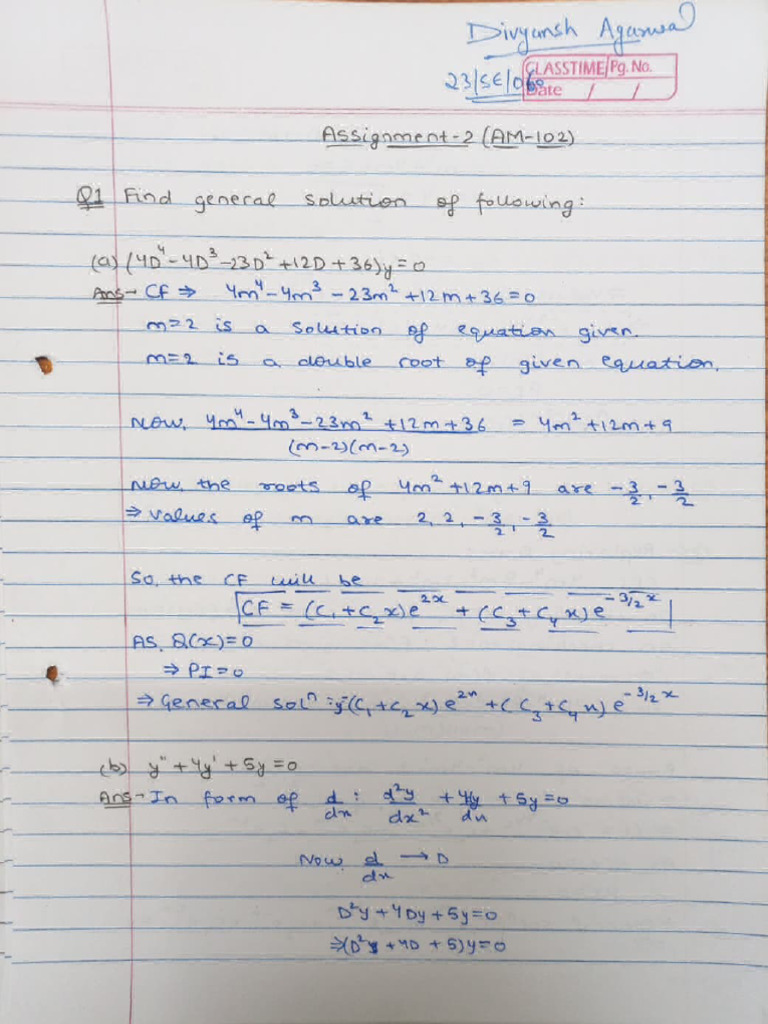 Divyansh Agarwal
CLASSTIME Pg. No.
23/SE/060
Date / /
Assignment-2 (AM-102)
Q1 Find general solution of following:
(a) (4D⁴-4D³-23D²+12D+36)y=0
Ans→ CF ⇒ 4m⁴-4m³-23m²+12m+36=0
m=2 is a solution of equation given.
m=2 is a double root of given equation.
Now, 4m⁴-4m³-23m²+12m+36 = 4m²+12m+9
(m-2)(m-2)
Now, the roots of 4m²+12m+9 are -3/2, -3/2
⇒ values of m are 2, 2, -3/2, -3/2
So, the CF will be
CF = (C₁+C₂x)e^2x + (C₃+C₄x)e^-3/2x
As, Q(x)=0
⇒ PI=0
⇒ General solⁿ: y=(C₁+C₂x)e^2x + (C₃+C₄x)e^-3/2x
(b) y''+4y'+5y=0
Ans→ In form of d/dx : d²y/dx² + 4dy/dx + 5y=0
Now d/dx → D
D²y+4Dy+5y=0
⇒(D²+4D+5)y=0